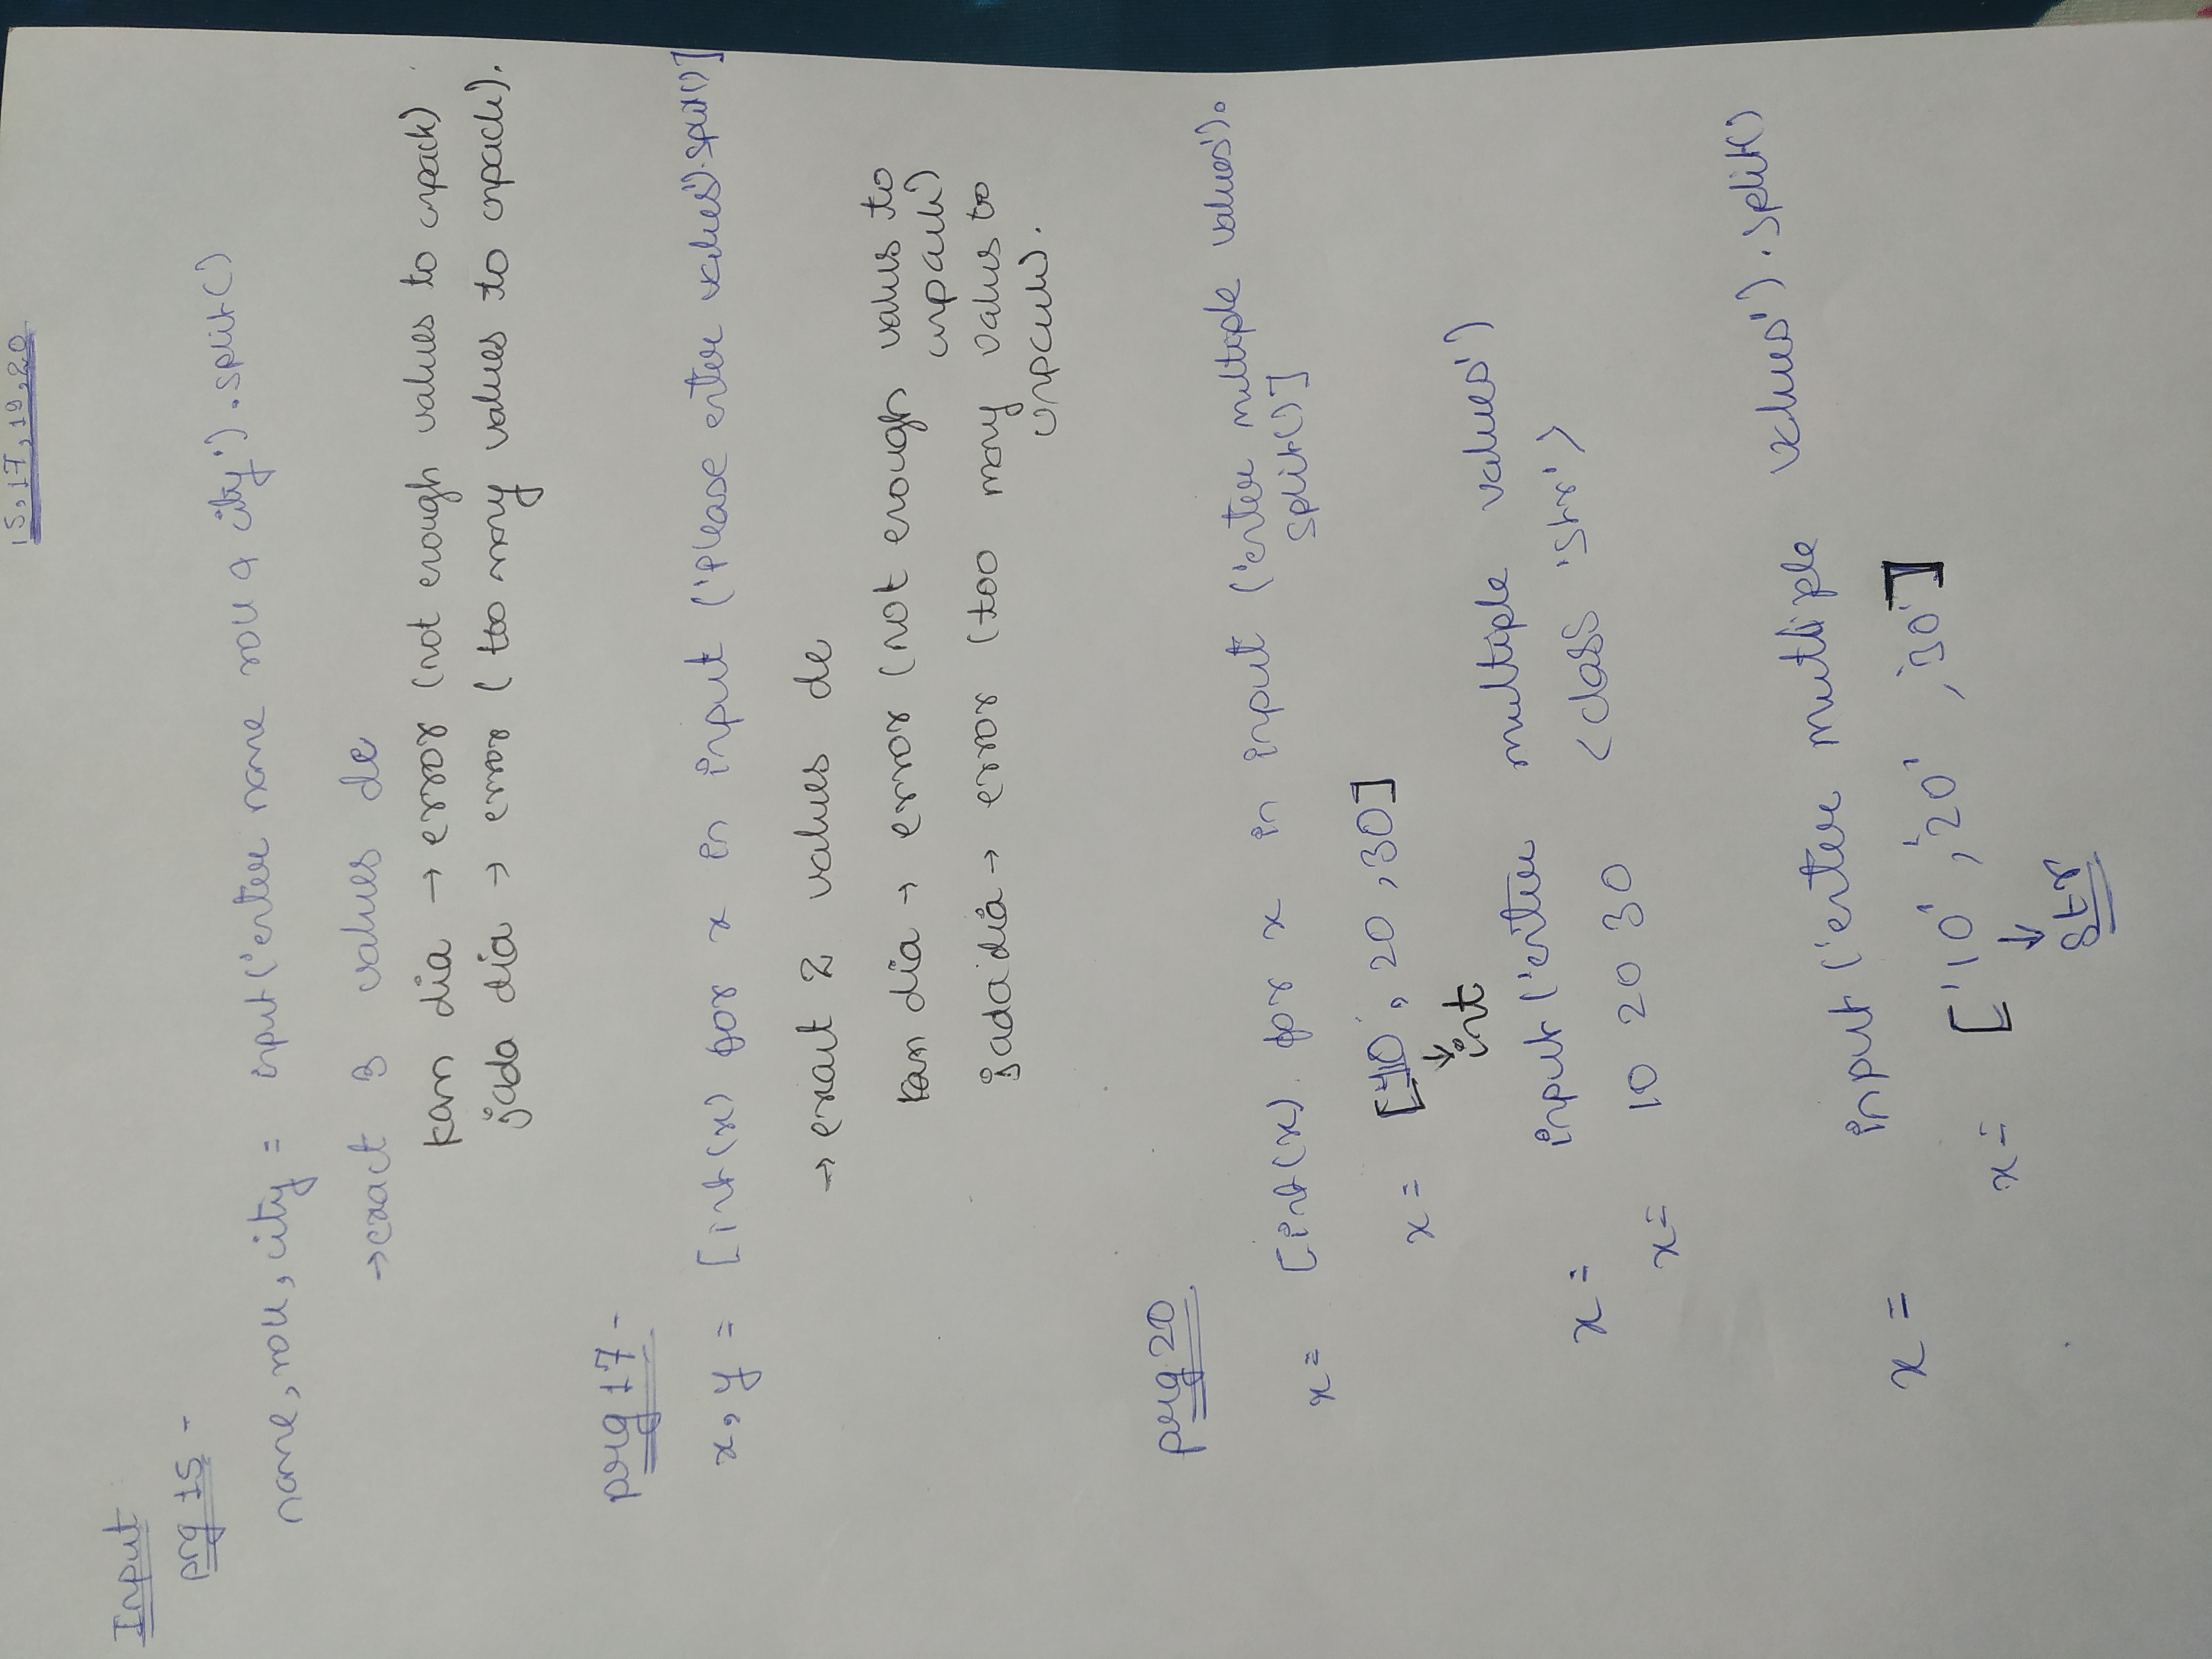 15,17,19,20
Input
prg 15 -
name, roll, city = input('enter name roll & city').split()
→ exact 3 values de
kam dia → error (not enough values to unpack)
jada dia → error (too many values to unpack).
prg 17 -
x, y = [int(x) for x in input ('Please enter values').split()]
→ exact 2 values de
kam dia → error (not enough values to
unpack)
jada dia → error (too many values to
unpack).
prg 20
x = [int(x) for x in input ('enter multiple values').
split()]
x = [10, 20, 30]
↓
int
x = input('enter multiple values')
x = 10 20 30 <class 'str'>
x = input('enter multiple values').split()
x = ['10', '20', '30']
↓
str